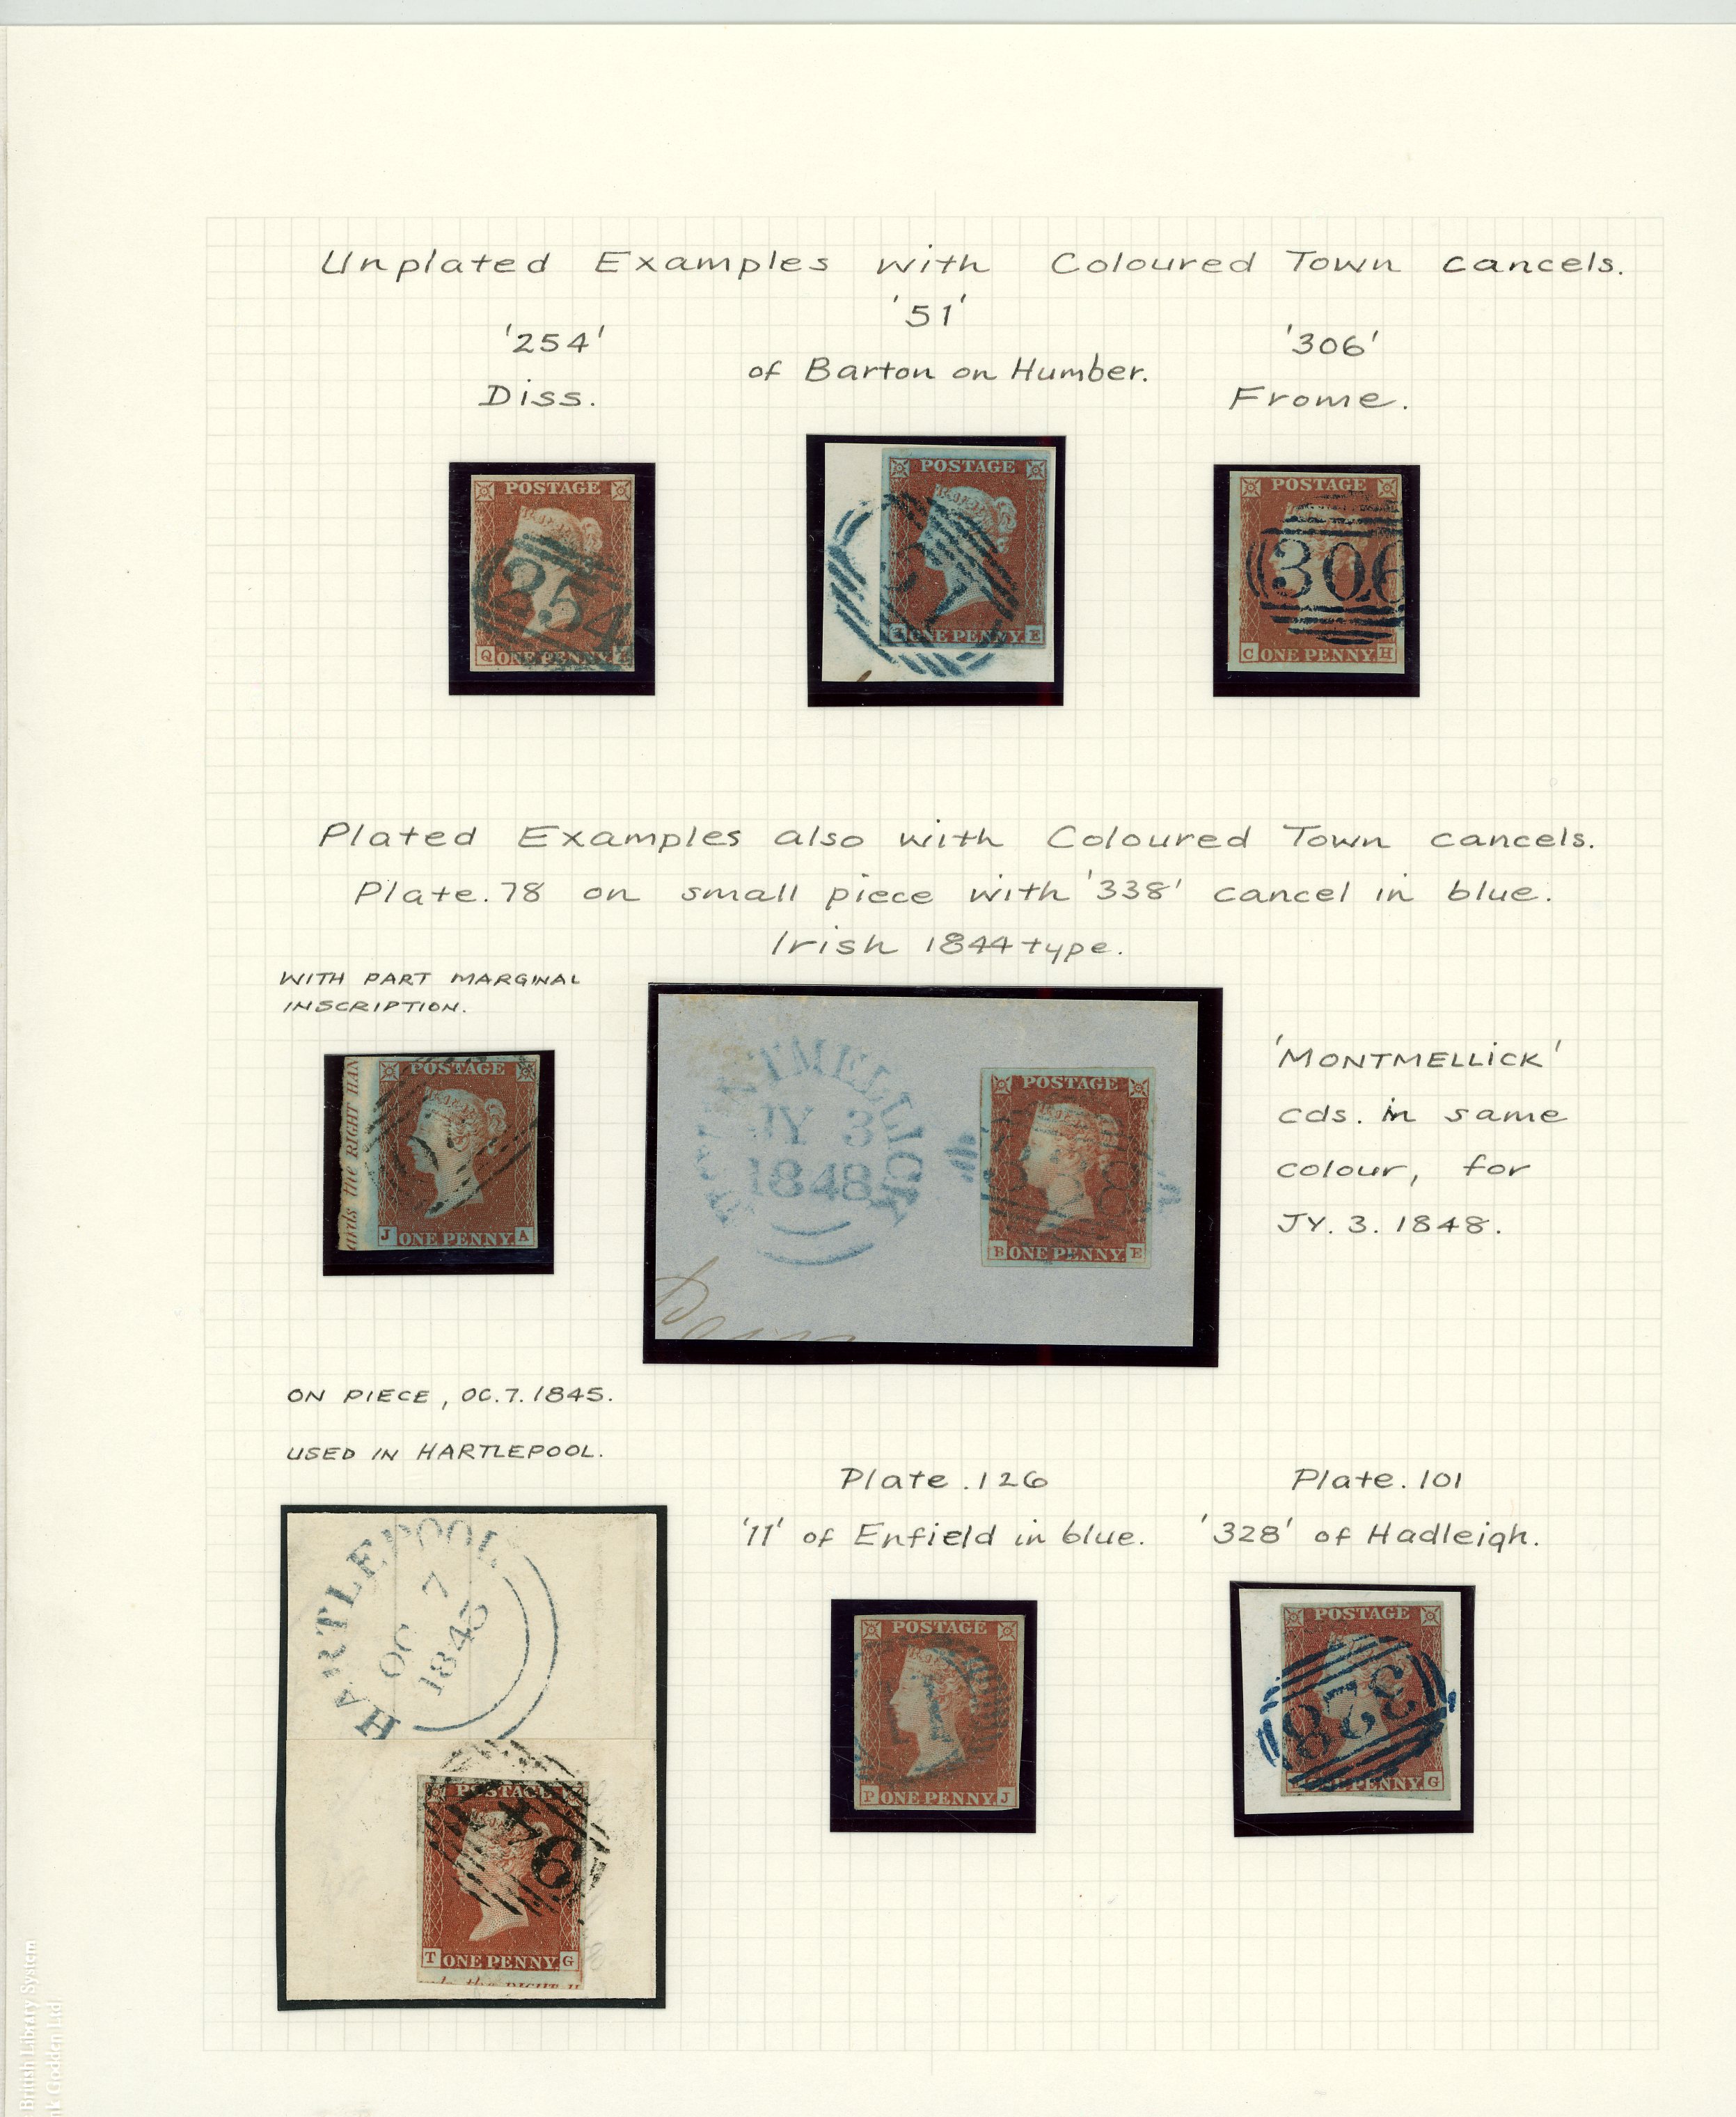 Unplated Examples with Coloured Town cancels.
'254'
Diss.
'51'
of Barton on Humber.
'306'
Frome.
POSTAGE
254
Q ONE PENNY
POSTAGE
51
ONE PENNY E
POSTAGE
306
C ONE PENNY H
Plated Examples also with Coloured Town cancels.
Plate.78 on small piece with '338' cancel in blue.
Irish 1844 type.
WITH PART MARGINAL
INSCRIPTION.
ards the RIGHT HAN
POSTAGE
J ONE PENNY A
TMELLICK
JY 3
1848
POSTAGE
338
B ONE PENNY E
'MONTMELLICK'
cds. in same
colour, for
JY. 3. 1848.
ON PIECE, OC.7.1845.
USED IN HARTLEPOOL.
HARTLEPOOL
OC 7
1845
POSTAGE
T ONE PENNY G
the RIGHT H
Plate.126
'11' of Enfield in blue.
POSTAGE
P ONE PENNY J
Plate.101
'328' of Hadleigh.
POSTAGE
328
PENNY G
British Library System
Clodden Ltd